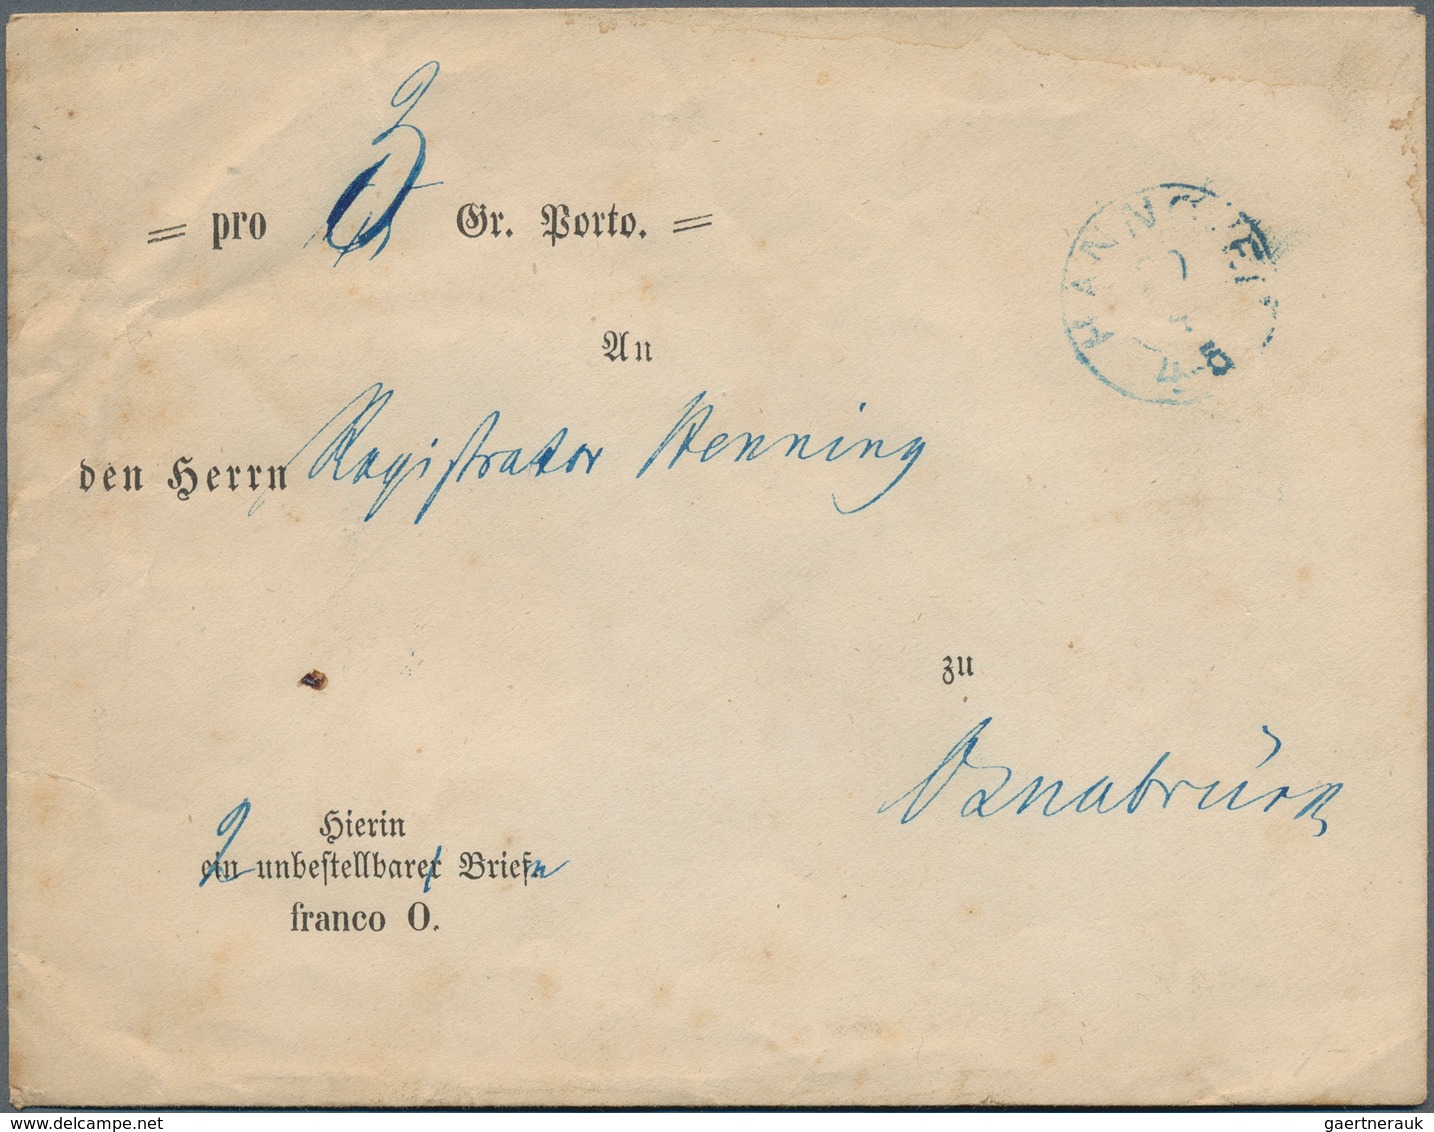 = pro 3 Gr. Porto. =
HANNOVER
4-5
An
den Herrn Registrator Henning
zu
Osnabrück
Hierin
2 ein unbestellbarer Briefe
franco O.
delcampe.net
gaertnerauk